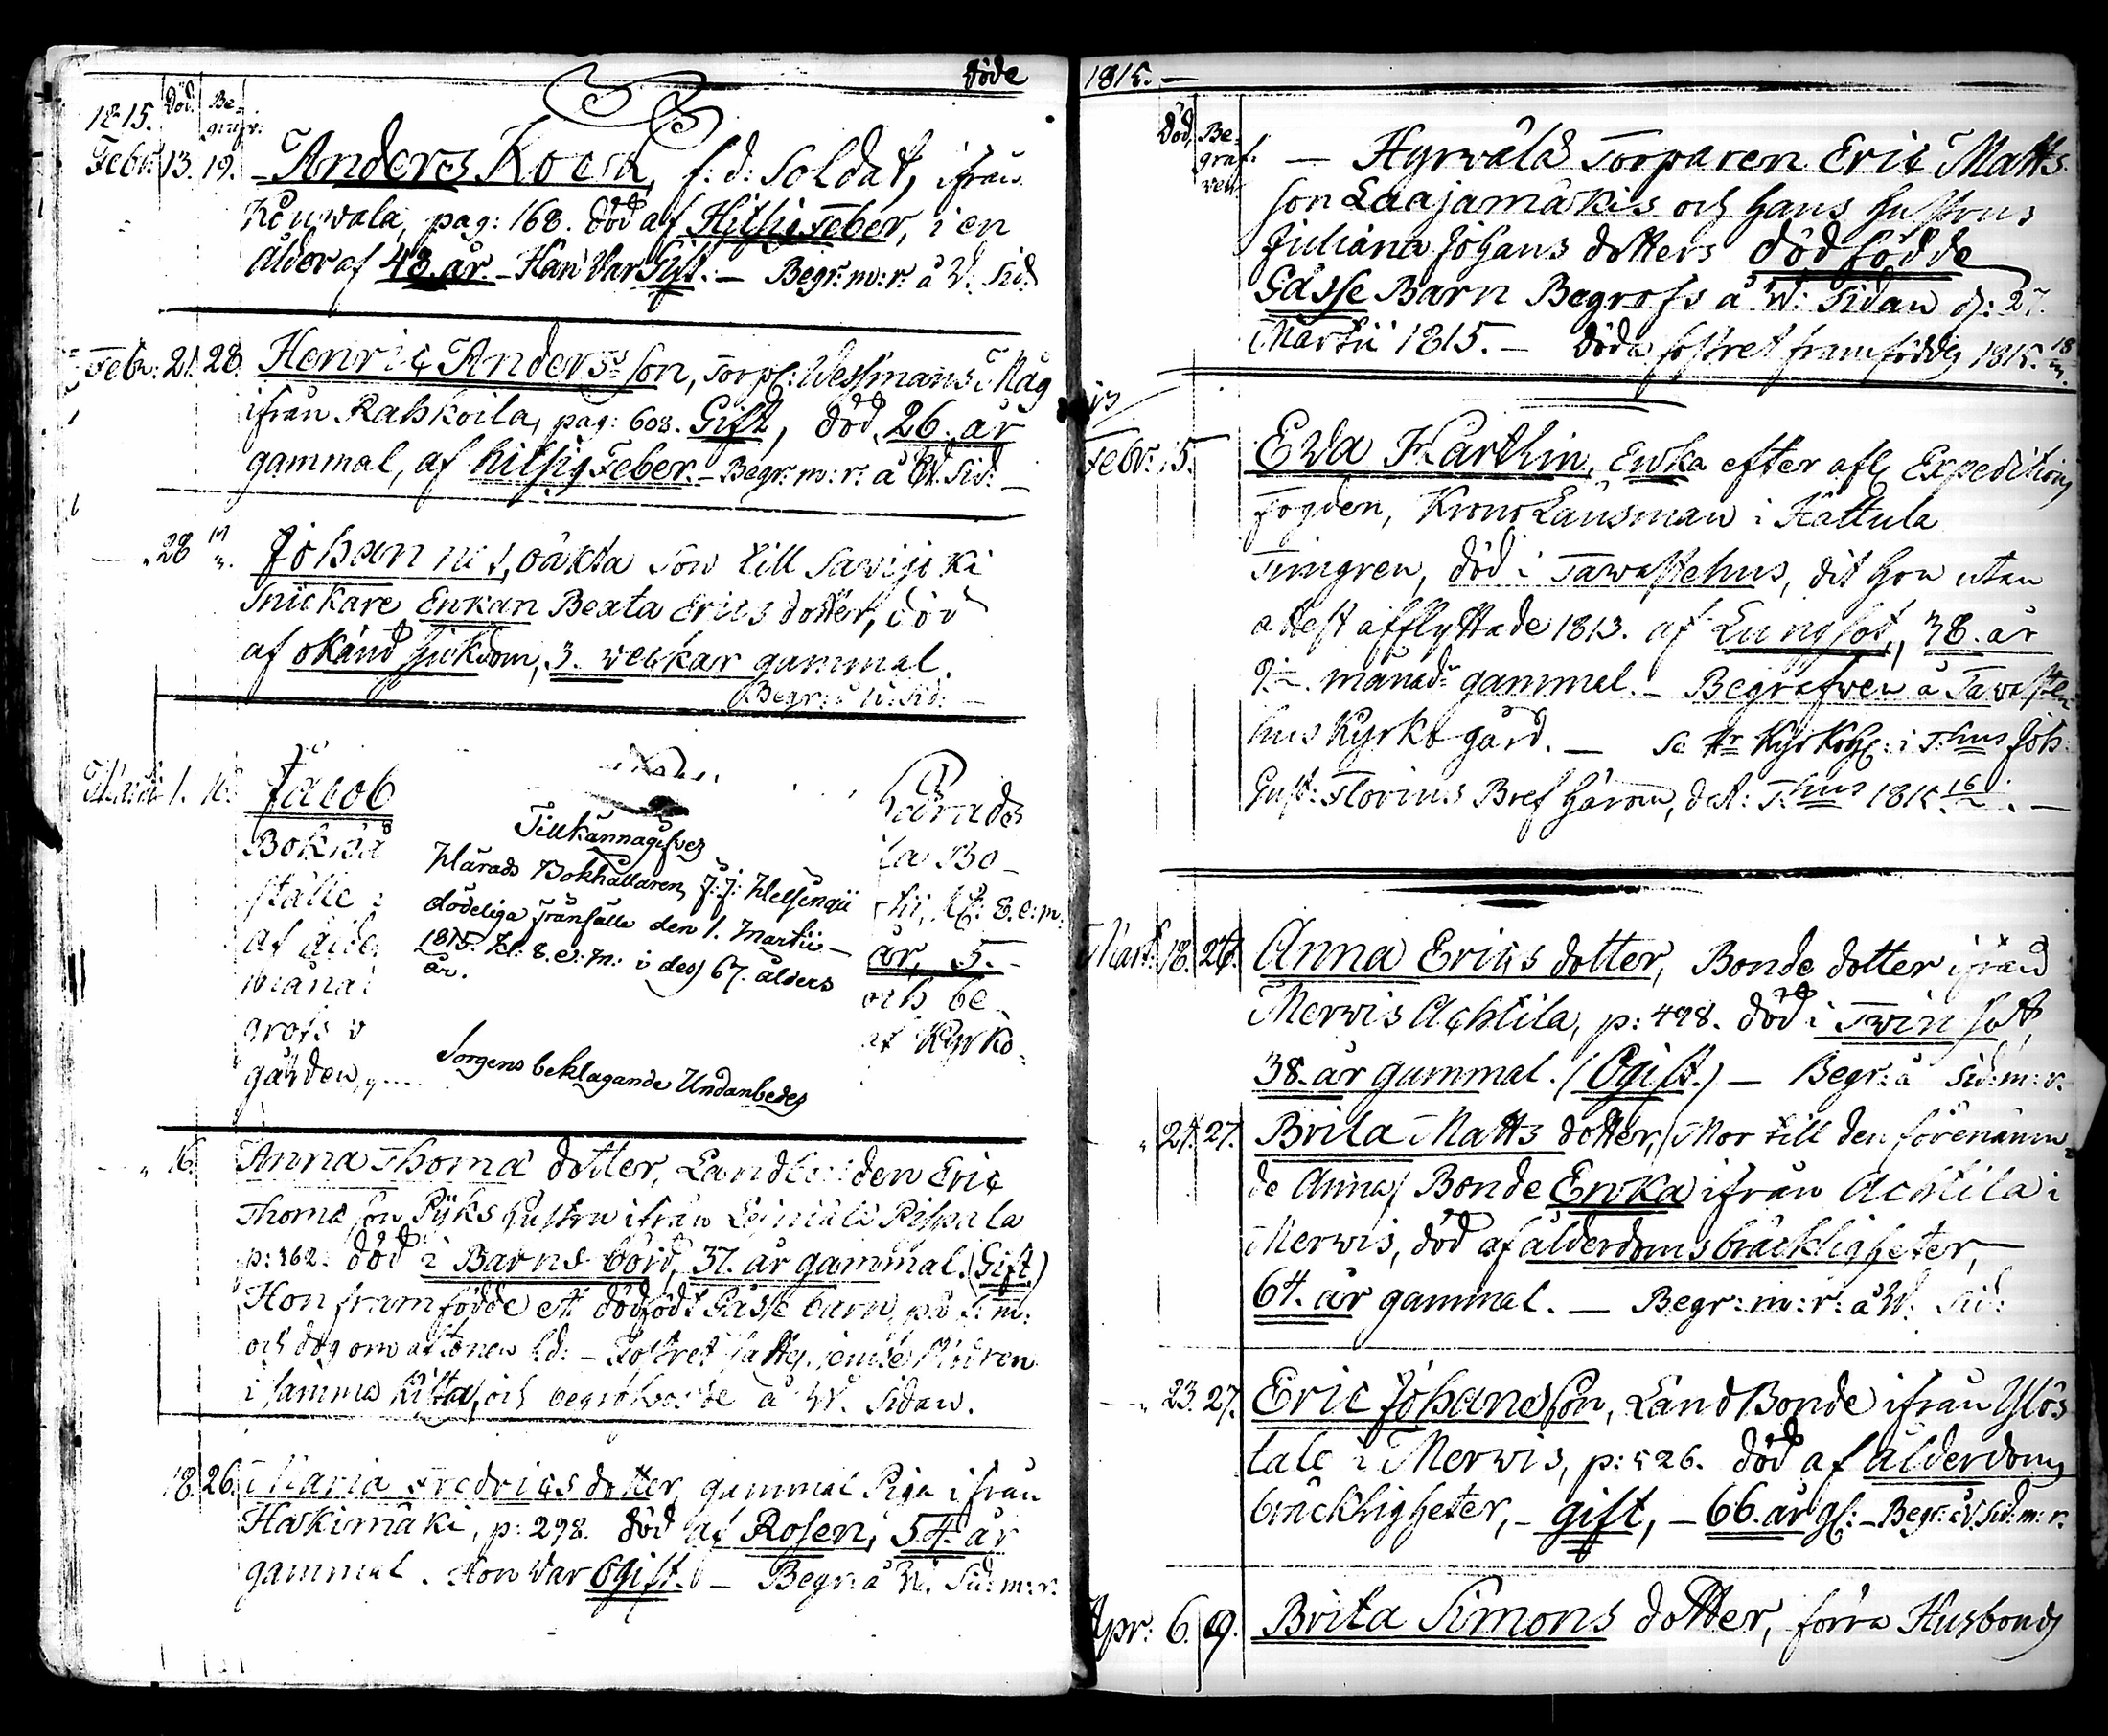 döde
1815. Död. Be-
grafv:
Febr: 13. 19. Anders Koesa, f: d: Soldat, ifrån
Kouwala, pag: 168. död af Hitsig Feber, i en
ålder af 48. år. - Han Var Gift. - Begr: m: r: å W. Sid:
Febr: 21. 28. Henric Anders son, Torp: Wessmans Måg
ifrån Rahkoila, pag: 608. Gift, död, 26. år
gammal, af hitsig Feber. - Begr: m: r: å W. Sid:
28 Johannes, oäkta Son till Savijoki
Snickare Enkan Beata Erics dotter, död
af okänd Sjukdom, 3. veckar gammal.
Begr: å W: Sid:
Martii 1. 16. Jacob Härads
Bokhå la Bo-
ställe tii, kl: 8. e: m:
af ålde år, 5.
måna och be-
grofs v at Kyrko-
gården,
Tillkännagifves
Härads Bokhållaren J: J: Helsingii
dödeliga frånfälle den 1. Martii
1815. Kl: 8. e: m: i dess 67. ålders
år.
Sorgens beklagande Undanbedes
16. Anna Thomæ dotter, Landbonden Eric
Thomæ son Pyks hustru ifrån Leiniälä Rispala
p: 362. död i Barns börd, 37. år gammal. (Gift.)
Hon framfödde ett dödfödt Gåsse barn, på f: m:
och dog om aftonen s.d: - Fostret sattes jemte Modren
i samma Kista, och begrofvos de å W. Sidan.
18. 26. Maria Fredrics dotter, gammal Piga ifrån
Hakimäki, p: 298. död af Rosen, 54. år
gammal. Hon Var Ogift. - Begr: å W. Sid: m: r:
1815. -
Död Be-
graf-
ven
- Hyrvälä Torparen Eric Matts
son Laajamäkis och hans hustrus
Juliana Johans dotters dödfödde
Gåsse Barn Begrofs å W: Sidan d: 27.
Martii 1815. - Döda fostret framföddes 1815. 18/3.
Febr: 15. Eva Harthin, Enka efter afl: Expeditions
Fogden, KronoLänsman i Hattula
Timgren, död i Tawastehus, dit hon utan
attest afflyttade 1813. af Lungsot, 38. år
9. månad: gammal. - Begrafven å Tawaste-
hus Kyrko gård. - Se Hr Kyrkoh: i T:hus Joh:
Gust: Florins Bref härom, dat: T:hus 1815 16/
Mart: 18. 26. Anna Erics dotter, Bonde dotter ifrån
Merwis Achtila, p: 498. död i Twin sot,
38. år gammal. (Ogift.) - Begr: å Sid: m: r:
21. 27. Brita Matts dotter, (Mor till den förenämn-
de Anna) Bonde Enka ifrån Achtila i
Merwis, död af ålderdoms bräckligheter,
64. år gammal. - Begr: m: r: å W. Sid:
23. 27. Eric Johans son, LandBonde ifrån Ylös
tale i Merwis, p: 526. död af ålderdoms
bräckligheter, - gift, - 66. år gl: - Begr: å W. Sid: m: r:
Apr: 6. 9. Brita Simons dotter, förra Husbonds